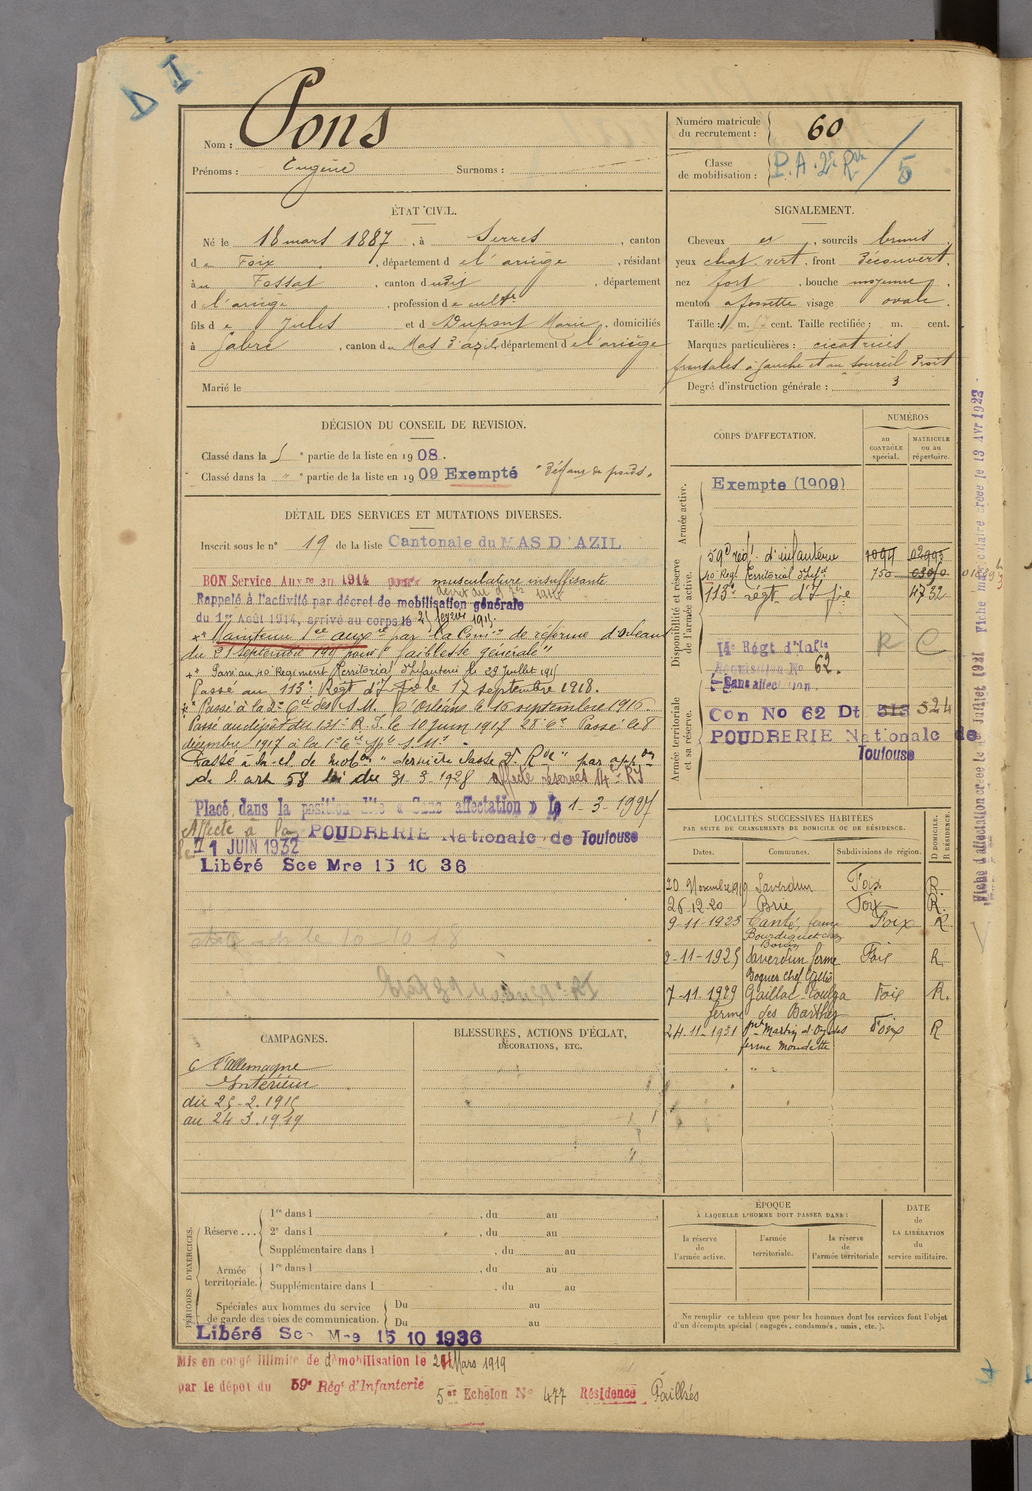 D I
Nom : Pons
Prénoms : Eugène Surnoms :
Numéro matricule du recrutement : 60
Classe de mobilisation : P.A. 2e Rve / 5
ÉTAT CIVIL.
Né le 18 mars 1887, à Serres, canton
de Foix, département de l'ariège, résidant
à Fossat, canton dudit, département
de l'ariège, profession de cultr
fils de Jules et de Dupont Marie, domiciliés
à Gabre, canton du Mas d'azil, département de l'ariège
Marié le
SIGNALEMENT.
Cheveux et, sourcils bruns
yeux chat. vert, front découvert,
nez fort, bouche moyenne,
menton a fossette visage ovale.
Taille : 1 m. cent. Taille rectifiée : m. cent.
Marques particulières : cicatrices
frontales à gauche et au sourcil droit
Degré d'instruction générale : 3
DÉCISION DU CONSEIL DE REVISION.
Classé dans la 5e partie de la liste en 1908.
Classé dans la " partie de la liste en 1909 Exempté "défaut de poids"
DÉTAIL DES SERVICES ET MUTATIONS DIVERSES.
Inscrit sous le n° 19 de la liste Cantonale du MAS D'AZIL
BON Service Auxre en 1914 pour musculature insuffisante
Rappelé à l'activité par décret de mobilisation générale
du 1er Août 1914, arrivé au corps le 25 février 1915.
Maintenu Sce auxre par la Comon de réforme d'Orléans
du 21 septembre pour "faiblesse générale"
Passé au 40e Régiment Territorial d'Infanterie le 29 Juillet
Passé au 113e Régt d'Ifie le 17 septembre 1918.
Passé à la 2e Cie des S.M. d'Orléans le 16 septembre 1916.
Passé au dépôt du 131e R.I. le 10 juin 1917 28e Cie. Passé le 8
décembre 1917 à la 1e Cie
Passé à la cl. de mobon "dernière classe 2e Rve" par appon
de l'art 58 du 31-3-1928 affecté réserves 14e RI
Placé dans la position dite « Sans affectation » le 1-3-1927
Affecté à la POUDRERIE Nationale de Toulouse
le 1 JUIN 1932
Libéré Sce Mre 15 10 36
CORPS D'AFFECTATION.
NUMÉROS
au CONTRÔLE spécial.
MATRICULE ou au répertoire.
Armée active.
Exempte (1909)
Disponibilité et réserve de l'armée active.
59e régt d'infanterie 1094 02993
40e Régt Territorial d'Infie 750
113e régt d'Ifie 4732
14e Régt d'Infie R C
Réquisition No 62.
Sans affectation.
Armée territoriale et sa réserve.
Con No 62 Dt 513 524
POUDRERIE Nationale de
Toulouse
Fiche d'affectation créée le Juillet 1931 Fiche matriculaire créée le 13 Avr 1922
LOCALITÉS SUCCESSIVES HABITÉES
PAR SUITE DE CHANGEMENTS DE DOMICILE OU DE RÉSIDENCE.
Dates. Communes. Subdivisions de région. D DOMICILE. R RÉSIDENCE.
20 Novembre 1919 Saverdun Foix R.
26.12.20 Brie Foix R.
9-11-1923 Canté, ferme Foix R
2-11-1925 Saverdun ferme Foix R
7-11-1929 Gaillac-Toulza Foix R.
ferme des Barthes
24-11-1931 St Martin d'Oydes Foix R
ferme Mondette
CAMPAGNES.
C. l'allemagne
Intérieur
du 25-2.1915
au 24.3.1919
BLESSURES, ACTIONS D'ÉCLAT,
DÉCORATIONS, ETC.
PÉRIODES D'EXERCICES.
Réserve ... 1re dans l , du au
2e dans l , du au
Supplémentaire dans l , du au
Armée territoriale. 1re dans l , du au
Supplémentaire dans l , du au
Spéciales aux hommes du service de garde des voies de communication. Du au
Du au
Libéré Sce Mre 15 10 1936
ÉPOQUE
À LAQUELLE L'HOMME DOIT PASSER DANS :
la réserve de l'armée active.
l'armée territoriale.
la réserve de l'armée territoriale
DATE DE LA LIBÉRATION du service militaire.
Ne remplir ce tableau que pour les hommes dont les services font l'objet
d'un décompte spécial (engagés, condamnés, omis, etc.).
Mis en congé illimité de démobilisation le Mars 1919
par le dépôt du 59e Régt d'Infanterie
5er Echelon No 477 Résidence Pailhès